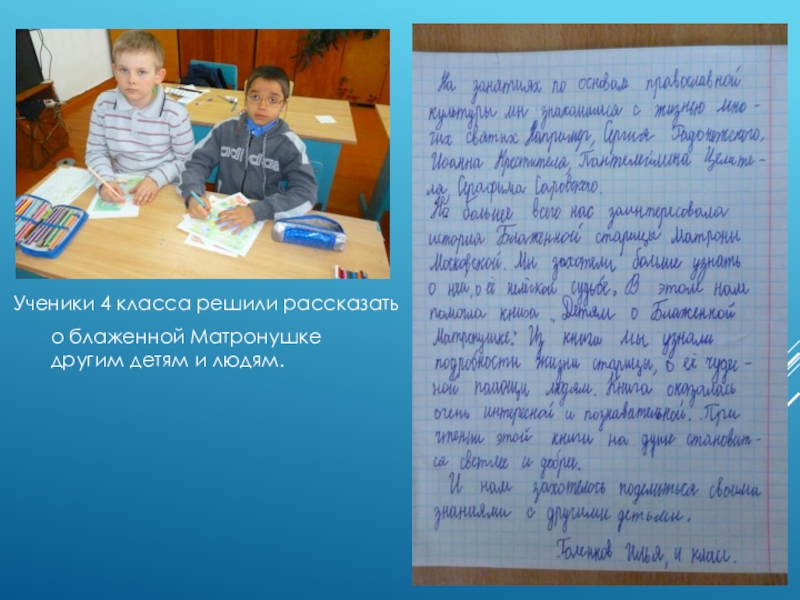 Ученики 4 класса решили рассказать
о блаженной Матронушке
другим детям и людям.
На занятиях по основам православной
культуры мы знакомимся с жизнью мно -
гих святых. Например, Сергия Радонежского,
Иоанна Крестителя, Пантелеймона Целите -
ля, Серафима Саровского.
Но больше всего нас заинтересовала
история Блаженной старицы Матроны
Московской. Мы захотели больше узнать
о ней, о её нелёгкой судьбе. В этом нам
помогла книга „Детям о Блаженной
Матронушке." Из книги мы узнали
подробности жизни старицы, о её чудес -
ной помощи людям. Книга оказалась
очень интересной и познавательной. При
чтении этой книги на душе становит -
ся светлее и добрее.
И нам захотелось поделиться своими
знаниями с другими детьми.
Илья, 4 класс.